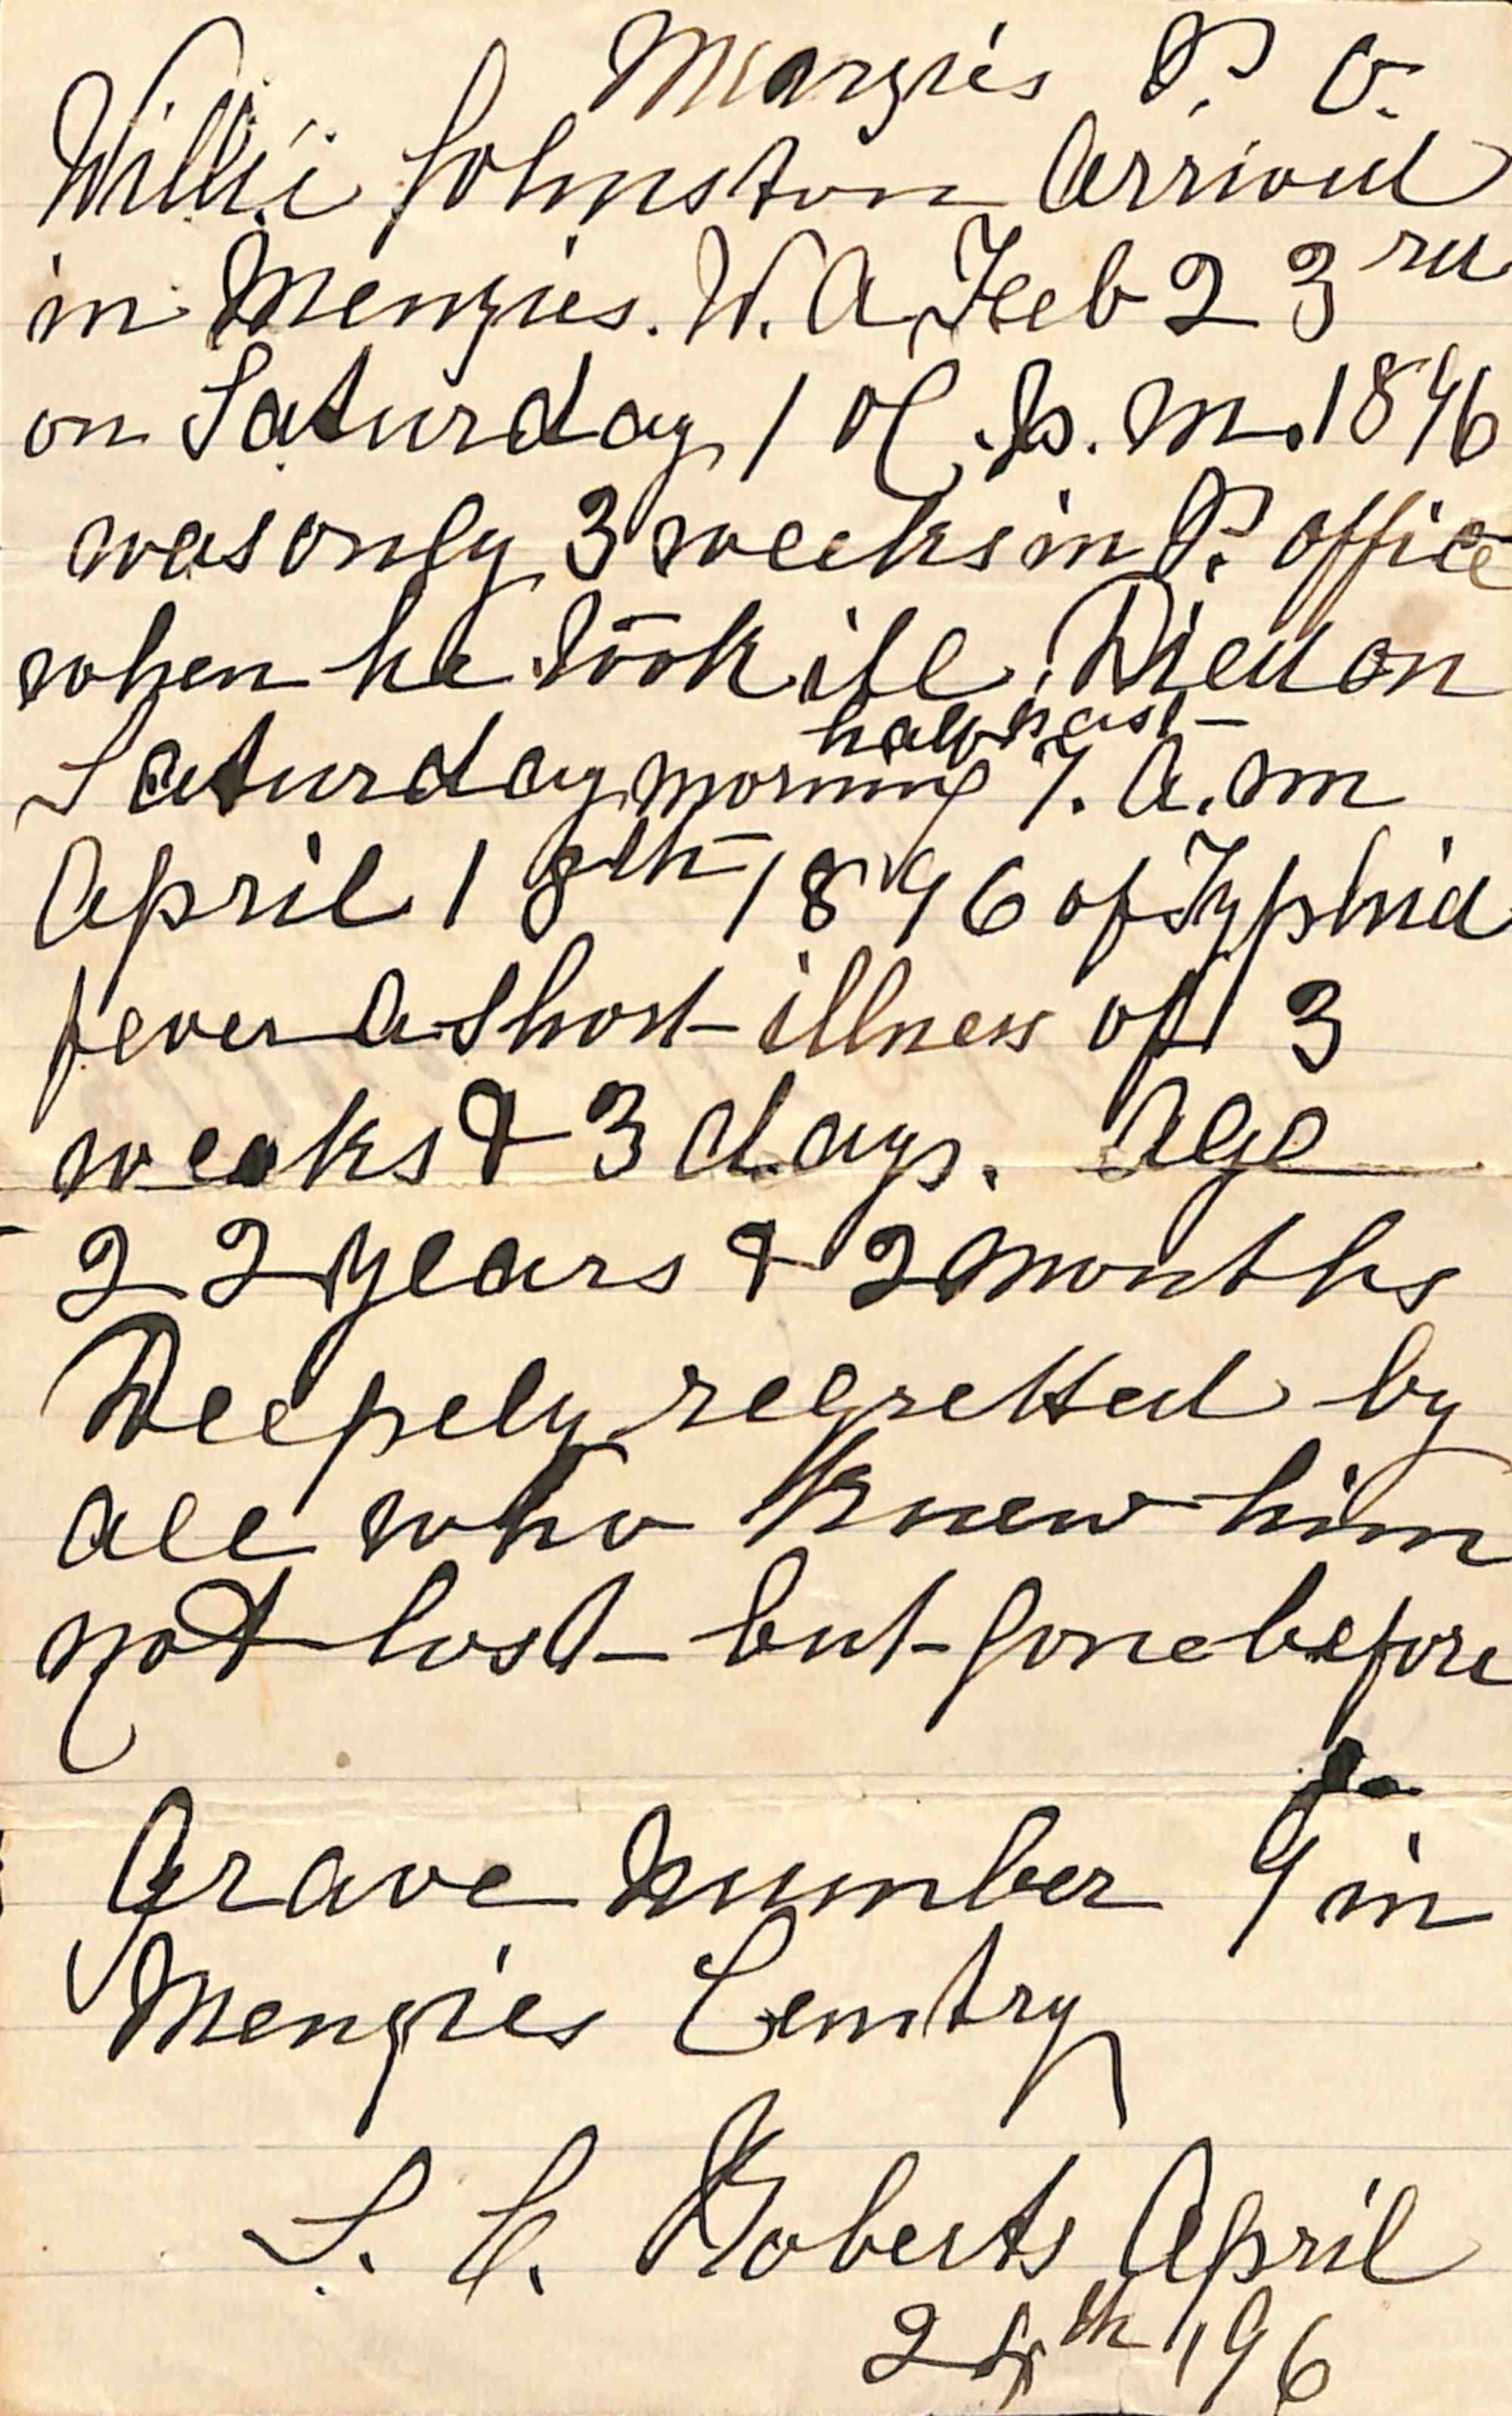 Menzies P. O.
Willie Johnston Arrived
in Menzies. W. A. Feb 23rd
on Saturday 1 oc. p. m. 1896
was only 3 weeks in P. office
when he took ill. Died on
half past
Saturday morning 7. A. m
April 18th 1896 of Typhid
fever a short illness of 3
weeks & 3 days. Age
22 years & 2 months
Deepely regretted by
all who knew him
not lost but gone before
Grave number 9 in
Menzies Cemtry
S. C. Roberts April
24th 96